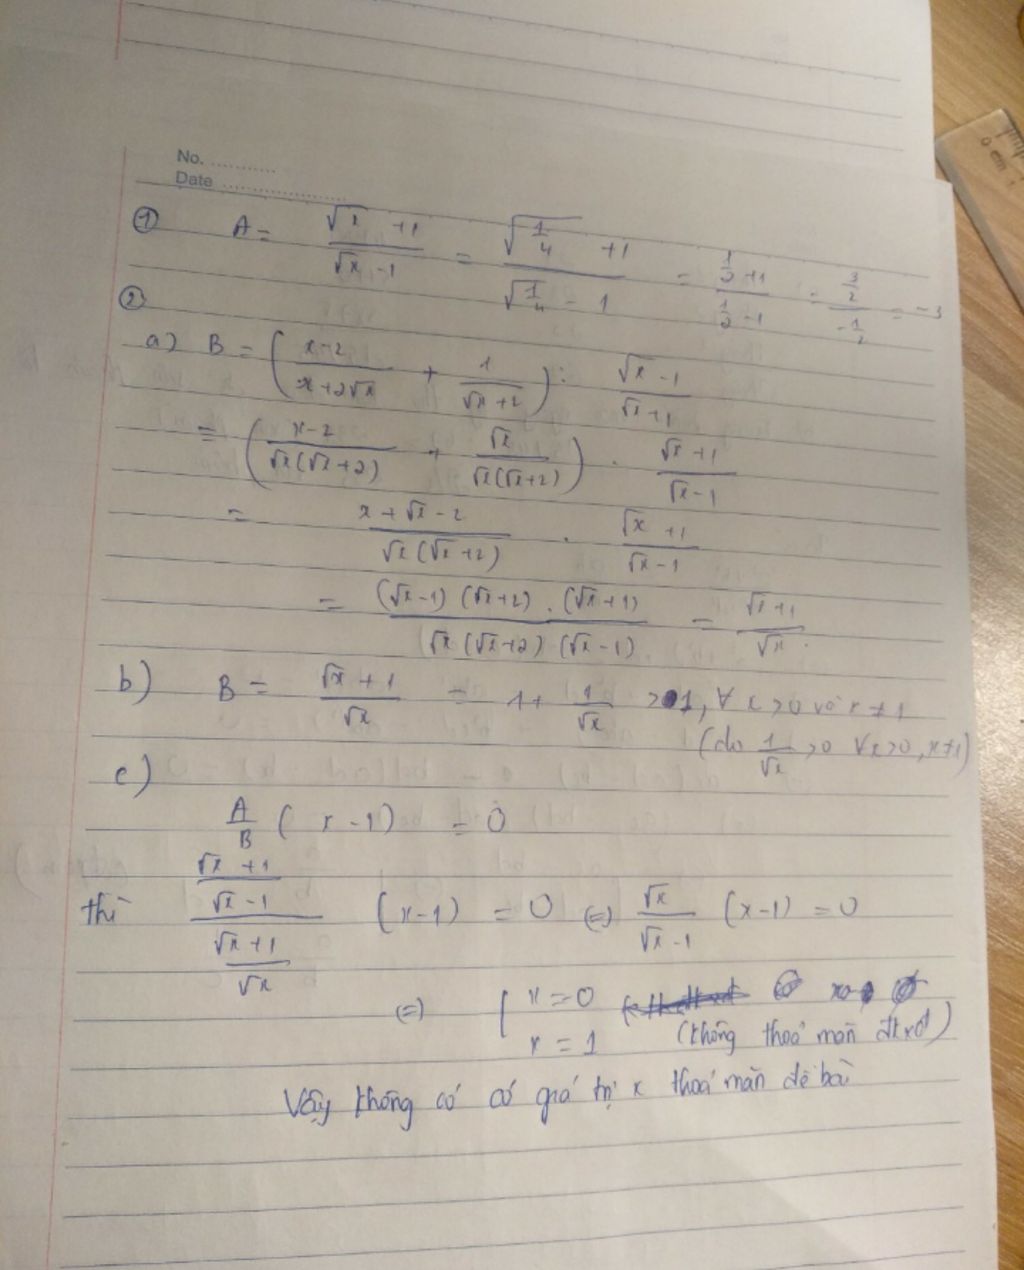 No. ............
Date .....................
① A = (√x + 1)/(√x - 1) = (√(1/4) + 1)/(√(1/4) - 1) = (1/2 + 1)/(1/2 - 1) = (3/2)/(-1/2) = -3
②
a) B = ((x-2)/(x+2√x) + 1/(√x+2)) : (√x - 1)/(√x+1)
= ((x-2)/(√x(√x+2)) + √x/(√x(√x+2))) . (√x+1)/(√x-1)
= (x+√x-2)/(√x(√x+2)) . (√x+1)/(√x-1)
= ((√x-1)(√x+2).(√x+1))/(√x(√x+2)(√x-1)) = (√x+1)/√x.
b) B = (√x+1)/√x = 1+ 1/√x >1, ∀ x>0 và x≠1
(do 1/√x >0 ∀x>0, x≠1)
c)
A/B (x-1) = 0
thì ((√x+1)/(√x-1))/((√x+1)/√x) (x-1) = 0 (=) √x/(√x-1) (x-1) = 0
(=) [ x=0
x=1 (không thoả mãn đkxđ)
Vậy không có có giá trị x thoả mãn đề bài